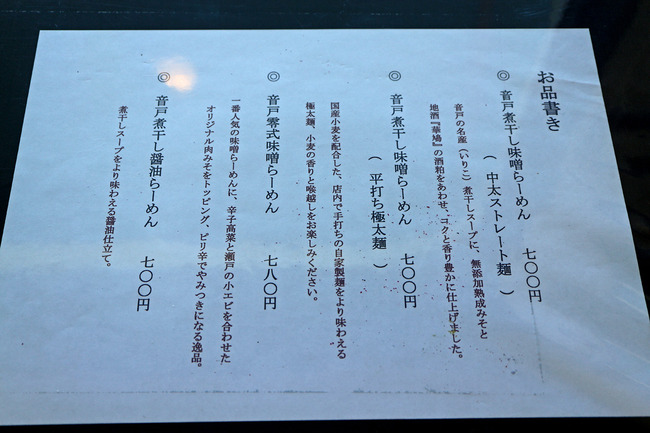 お品書き
◎ 音戸煮干し味噌らーめん 七〇〇円
( 中太ストレート麺 )
音戸の名産(いりこ)煮干しスープに、無添加熟成みそと
地酒『華鳩』の酒粕をあわせ、コクと香り豊かに仕上げました。
◎ 音戸煮干し味噌らーめん 七〇〇円
( 平打ち極太麺 )
国産小麦を配合した、店内で手打ちの自家製麺をより味わえる
極太麺、小麦の香りと喉越しをお楽しみください。
◎ 音戸零式味噌らーめん 七八〇円
一番人気の味噌らーめんに、辛子高菜と瀬戸の小エビを合わせた
オリジナル肉みそをトッピング、ピリ辛でやみつきになる逸品。
◎ 音戸煮干し醤油らーめん 七〇〇円
煮干しスープをより味わえる醤油仕立て。